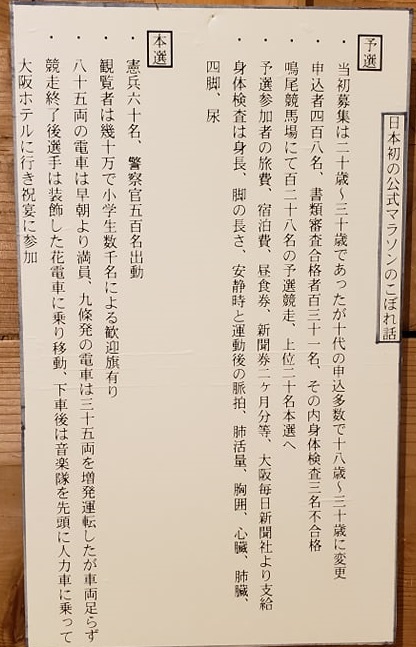 日本初の公式マラソンのこぼれ話
予選
・ 当初募集は二十歳～三十歳であったが十代の申込多数で十八歳～三十歳に変更
・ 申込者四百八名、書類審査合格者百三十一名、その内身体検査三名不合格
・ 鳴尾競馬場にて百二十八名の予選競走、上位二十名本選へ
・ 予選参加者の旅費、宿泊費、昼食券、新聞券二ヶ月分等、大阪毎日新聞社より支給
・ 身体検査は身長、脚の長さ、安静時と運動後の脈拍、肺活量、胸囲、心臓、肺臓、
四脚、尿
本選
・ 憲兵六十名、警察官五百名出動
・ 観覧者は幾十万で小学生数千名による歓迎旗有り
・ 八十五両の電車は早朝より満員、九條発の電車は三十五両を増発運転したが車両足らず
・ 競走終了後選手は装飾した花電車に乗り移動、下車後は音楽隊を先頭に人力車に乗って
大阪ホテルに行き祝宴に参加